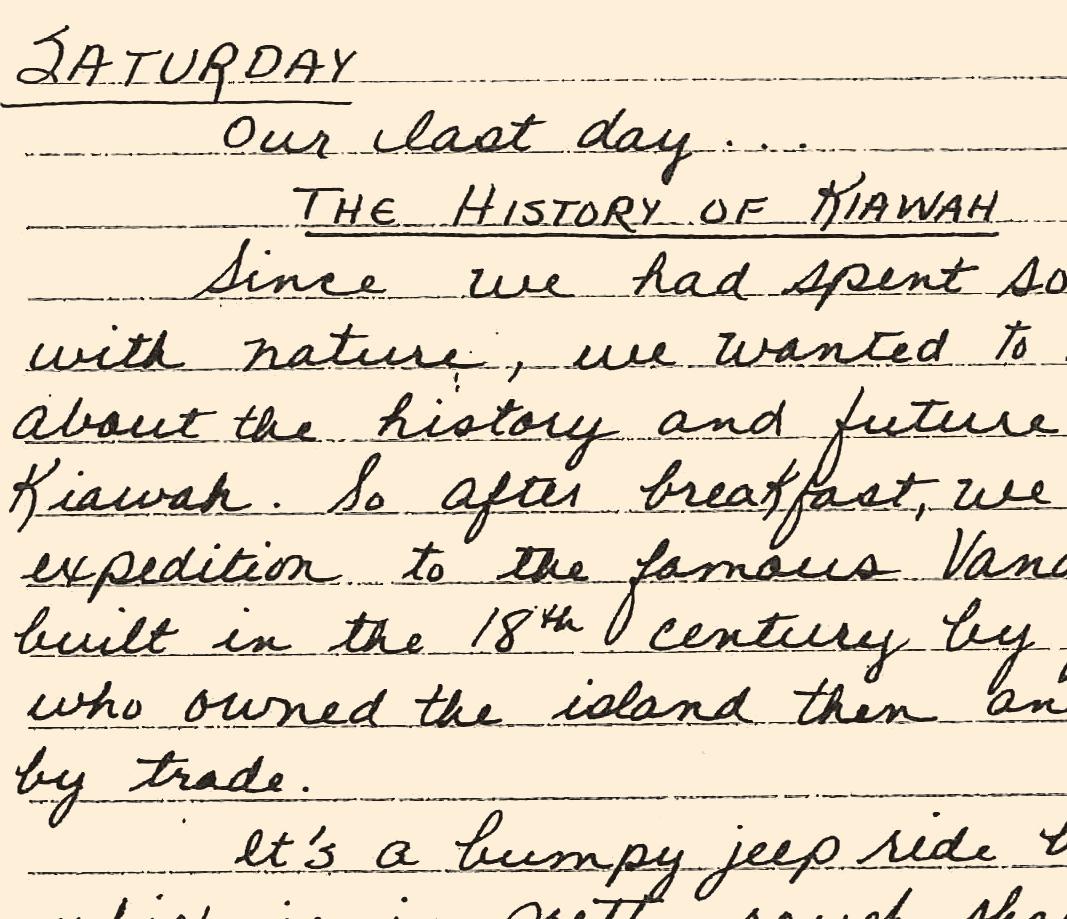 SATURDAY
Our last day . . .
THE HISTORY OF KIAWAH
Since we had spent so
with nature, we wanted to
about the history and future
Kiawah. So after breakfast, we
expedition to the famous Vand
built in the 18th century by
who owned the island then an
by trade.
It's a bumpy jeep ride b
which is in